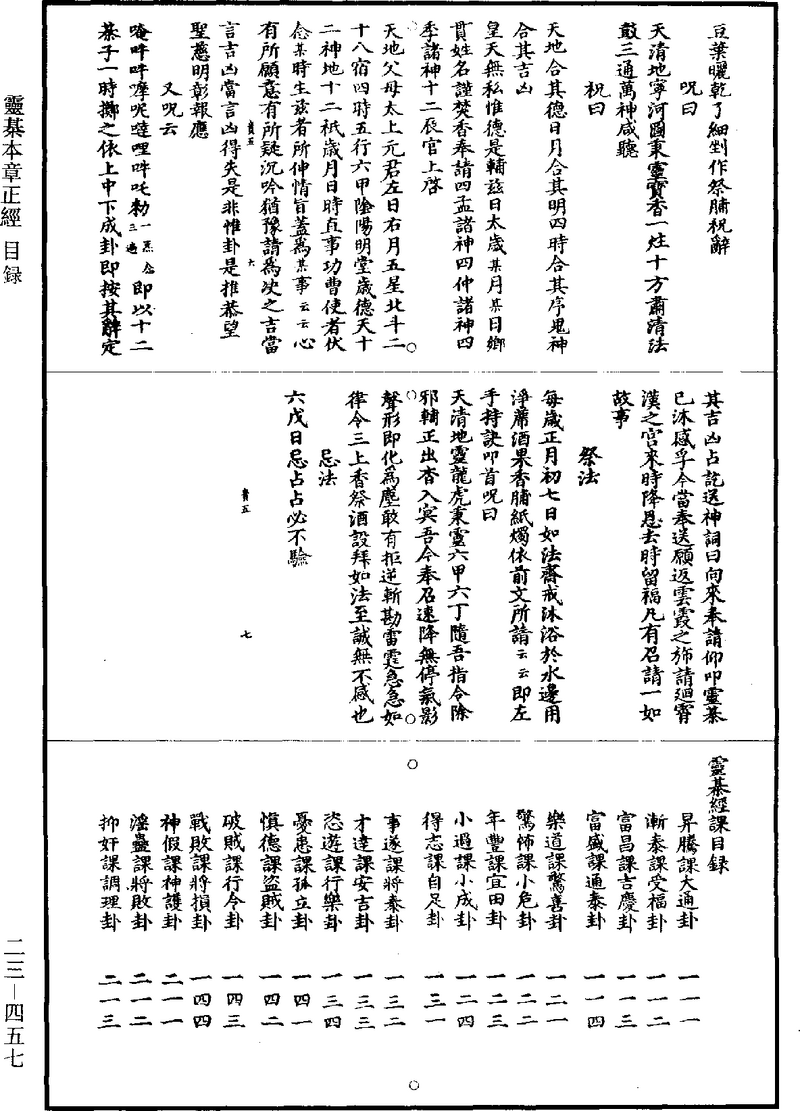 豆葉曬乾了細剉作祭脯祝辭
呪曰
天清地寧河圖秉靈寶香一炷十方肅清法
鼓三通萬神咸聽
祝曰
天地合其德日月合其明四時合其序鬼神
合其吉凶
皇天無私惟德是輔茲日太歲某月某日鄉
貫姓名謹焚香奉請四孟諸神四仲諸神四
季諸神十二辰官上啓
天地父母太上元君左日右月五星北斗二
十八宿四時五行六甲陰陽明堂歲德天十
二神地十二祇歲月日時直事功曹使者伏
念某時生茲者所伸情旨蓋爲某事云云心
有所願意有所疑沉吟猶豫請爲決之吉當
言吉凶當言凶得失是非惟卦是推恭望
聖慈明彰報應
又呪云
唵吽吽㗌呢噠哩吽吒勑一炁念三遍即以十二
棊子一時擲之依上中下成卦即按其辭定
其吉凶占訖送神詞曰向來奉請仰叩靈棊
已沐感孚今當奉送願返雲霞之斾請迴霄
漢之宫來時降恩去時留福凡有召請一如
故事
祭法
每歲正月初七日如法齋戒沐浴於水邊用
淨蓆酒果香脯紙燭依前文所請云云即左
手持訣叩首呪曰
天清地靈龍虎秉靈六甲六丁隨吾指令除
邪輔正出杳入㝠吾今奉召速降無停氣影
聲形即化爲塵敢有拒逆斬勘雷霆急急如
律令三上香祭酒設拜如法至誠無不感也
忌法
六戊日忌占占必不驗
靈棊經課目録
昇騰課大通卦 一一一
漸泰課受福卦 一一二
富昌課吉慶卦 一一三
富盛課通泰卦 一一四
樂道課驚喜卦 一二一
驚怖課小危卦 一二二
年豐課宜田卦 一二三
小過課小成卦 一二四
得志課自足卦 一三一
事遂課將泰卦 一三二
才達課安吉卦 一三三
恣遊課行樂卦 一三四
憂患課孤立卦 一四一
慎德課盜賊卦 一四二
破賊課行令卦 一四三
戰敗課將損卦 一四四
神假課神護卦 二一一
淫蠱課將敗卦 二一二
抑奸課調理卦 二一三
靈棊本章正經 目録
二三—四五七